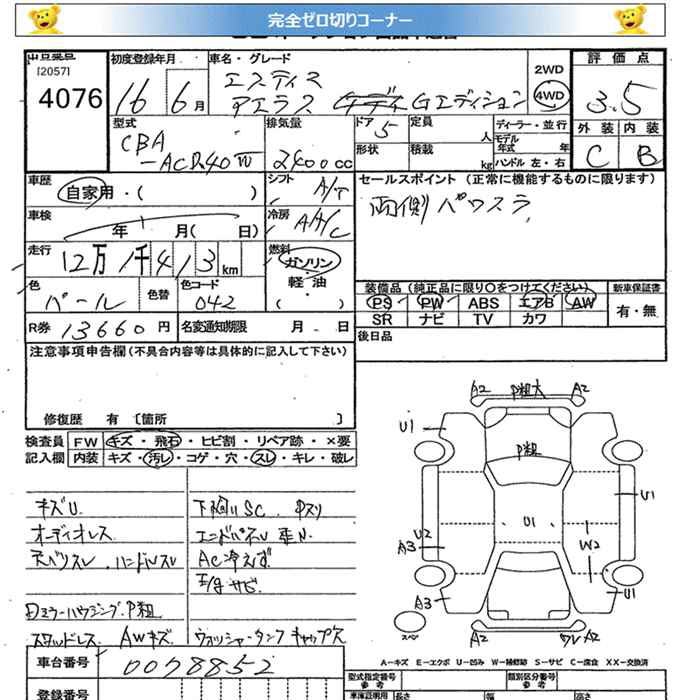 完全ゼロ切りコーナー
[2057]
4076
初度登録年月
16 6月
車名・グレード
エスティマ
アエラス Gエディション
2WD
4WD
評価点
3.5
外装 内装
C B
型式
CBA
-ACR40W
排気量
2400cc
ドア 5
形状
定員 人
積載 kg
ディーラー・並行
モデル年式 年
ハンドル 左・右
車歴
自家用・( )
シフト A/T
車検
年 月( 日)
冷房 AA/C
セールスポイント(正常に機能するものに限ります)
両側パワスラ
走行
12万1千413km
燃料
ガソリン・
軽油・
( )
色
パール
色替
色コード
042
装備品(純正品に限り〇をつけてください)
PS PW ABS エアB AW
SR ナビ TV カワ
新車保証書
有・無
R券 13660円
名変通知期限 月 日
後日品
注意事項申告欄(不具合内容等は具体的に記入して下さい)
修復歴 有 〔箇所 〕
検査員
記入欄
FW キズ・飛石・ヒビ割・リペア跡・×要
内装 キズ・汚レ・コゲ・穴・スレ・キレ・破レ
キズU
オーディオレス
天ベリスレ、ハンドルスレ
ミラーハウジング、P粗
スタッドレス AWキズ
下廻りSC
エンドパネル
AC冷えず
E/gサビ
ウォッシャータンクキャップ欠
A2 P粗大 A2
U1
P粗
U1
U1
U2
A3
W2
A3
U1
スペ
A2
A2
A−キズ E−エクボ U−凹み W−補修跡 S−サビ C−腐食 XX−交換済
車台番号
0078852
登録番号
型式指定番号
参考
類別区分番号
参考
車庫証明用 長さ 幅 高さ